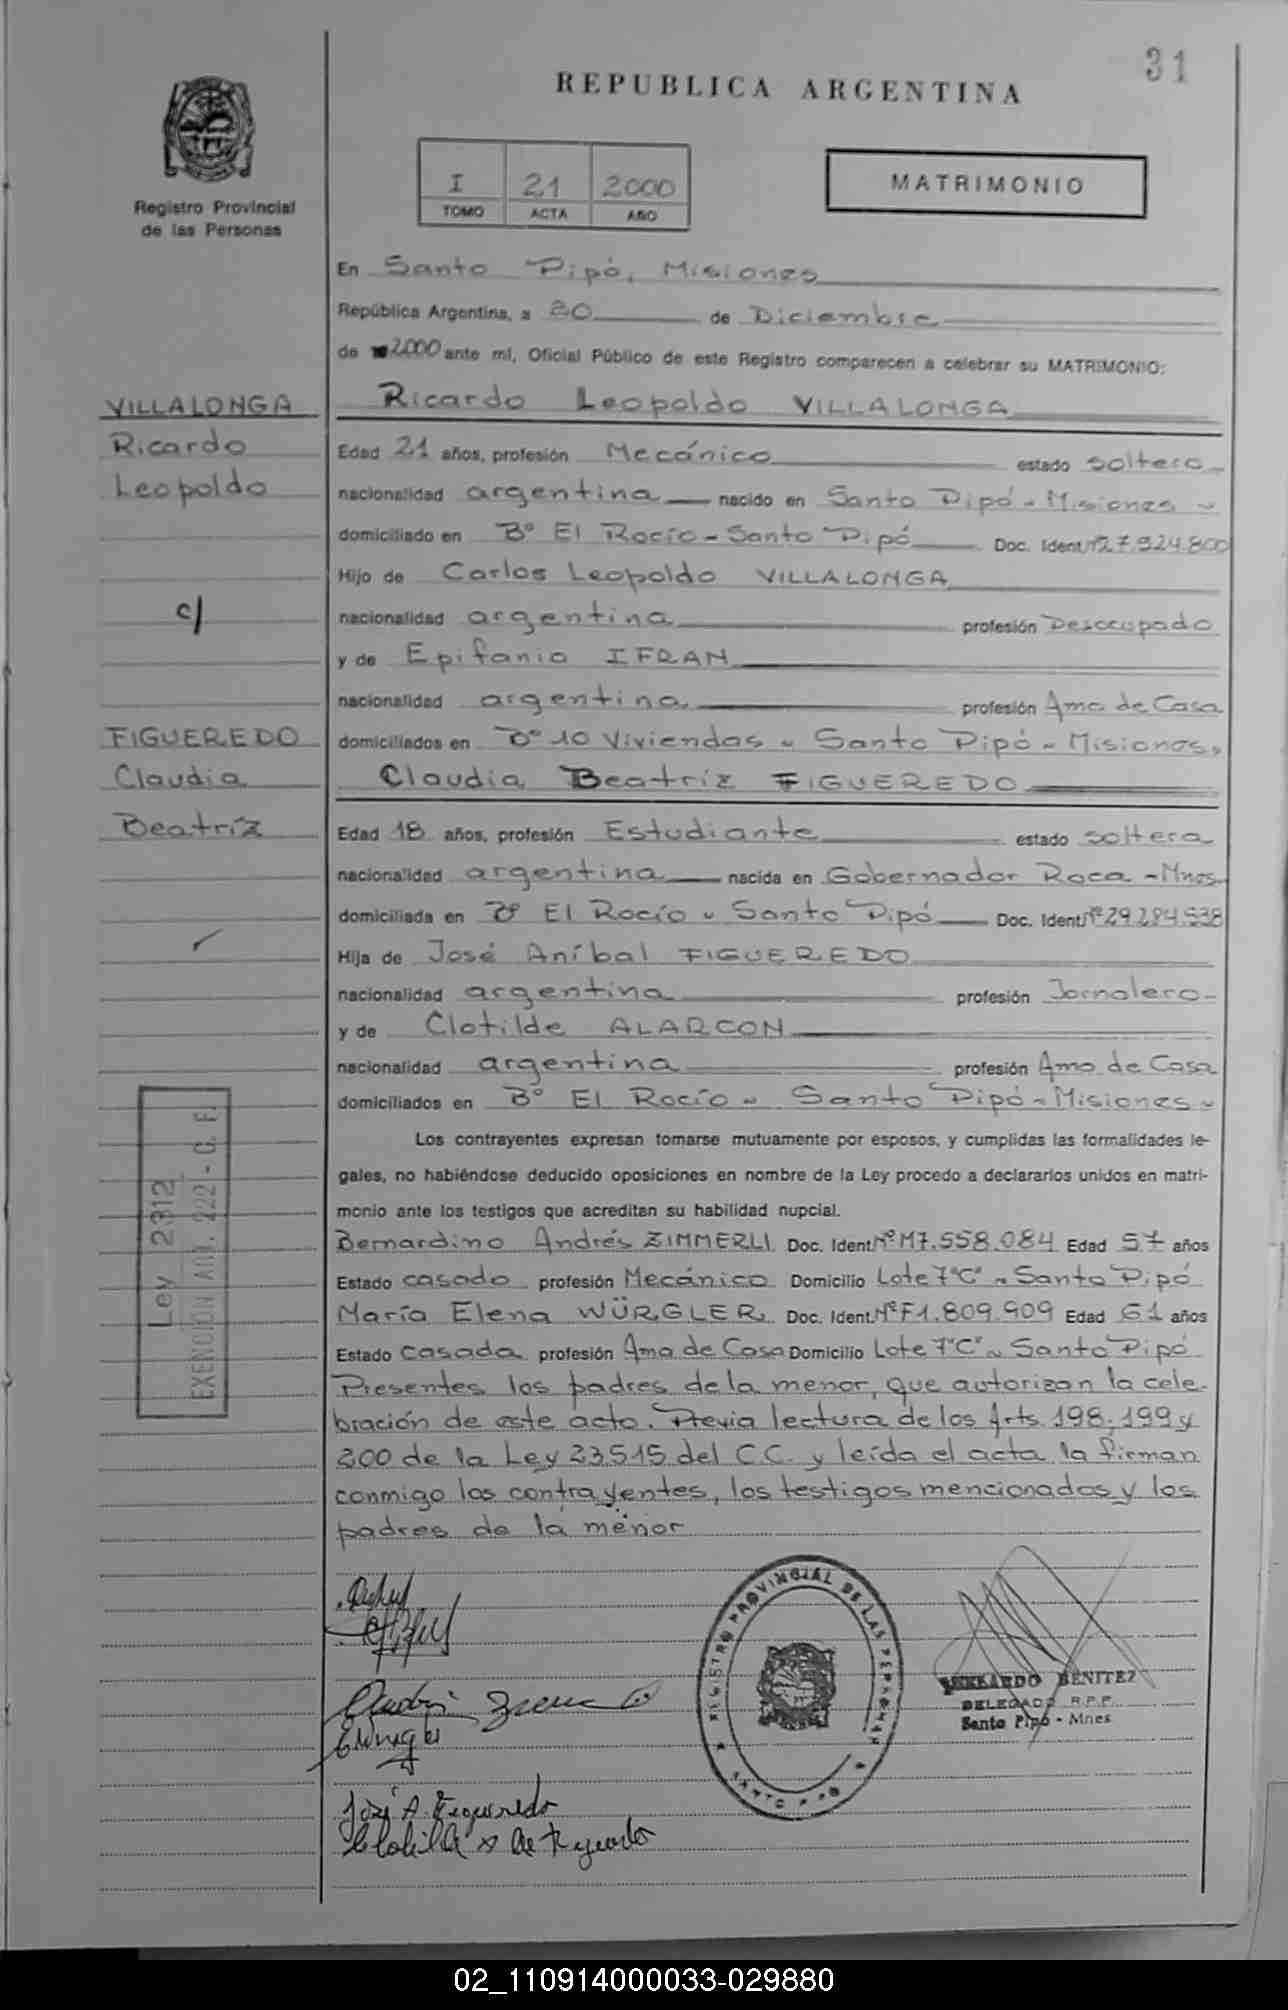 31
REPUBLICA ARGENTINA
Registro Provincial
de las Personas
I 21 2000
TOMO ACTA AÑO
MATRIMONIO
En Santo Pipó, Misiones
República Argentina, a 20 de Diciembre
de 2000 ante mí, Oficial Público de este Registro comparecen a celebrar su MATRIMONIO:
VILLALONGA
Ricardo
Leopoldo
c/
FIGUEREDO
Claudia
Beatríz
Ricardo Leopoldo VILLALONGA
Edad 21 años, profesión Mecánico estado soltero
nacionalidad argentina nacido en Santo Pipó - Misiones
domiciliado en B° El Rocío - Santo Pipó Doc. Ident. N° 27.924.800
Hijo de Carlos Leopoldo VILLALONGA
nacionalidad argentina profesión Desocupado
y de Epifania IFRAN
nacionalidad argentina profesión Ama de Casa
domiciliados en B° 10 Viviendas - Santo Pipó - Misiones
Claudia Beatríz FIGUEREDO
Edad 18 años, profesión Estudiante estado soltera
nacionalidad argentina nacida en Gobernador Roca - Mnes
domiciliada en B° El Rocío - Santo Pipó Doc. Ident. N° 29.284.538
Hija de José Aníbal FIGUEREDO
nacionalidad argentina profesión Jornalero
y de Clotilde ALARCON
nacionalidad argentina profesión Ama de Casa
domiciliados en B° El Rocío - Santo Pipó - Misiones
Los contrayentes expresan tomarse mutuamente por esposos, y cumplidas las formalidades le-
gales, no habiéndose deducido oposiciones en nombre de la Ley procedo a declararlos unidos en matri-
monio ante los testigos que acreditan su habilidad nupcial.
Bernardino Andrés ZIMMERLI Doc. Ident. N° M7.558.084 Edad 57 años
Estado casado profesión Mecánico Domicilio Lote 7"C" - Santo Pipó
María Elena WÜRGLER Doc. Ident. N° F1.809.909 Edad 61 años
Estado casada profesión Ama de Casa Domicilio Lote 7"C" - Santo Pipó
Presentes los padres de la menor, que autorizan la cele-
bración de este acto. Previa lectura de los Arts. 198, 199 y
200 de la Ley 23.515 del C.C. y leída el acta la firman
conmigo los contrayentes, los testigos mencionados y los
padres de la menor
Ley 2312
EXENCION ART. 222 - C. F.
REGISTRO PROVINCIAL DE LAS PERSONAS
SANTO PIPO
BENITEZ
DELEGADO R.P.P.
Santo Pipó - Mnes
José A. Figueredo
02_110914000033-029880